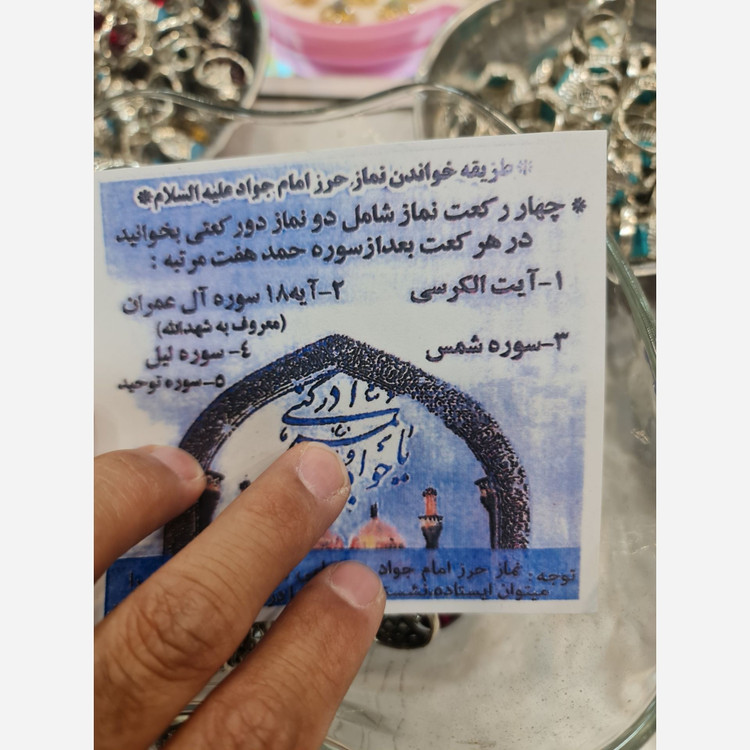 * طریقه خواندن نماز حرز امام جواد علیه السلام *
* چهار رکعت نماز شامل دو نماز دورکعتی بخوانید
در هر کعت بعدازسوره حمد هفت مرتبه :
۱-آیت الکرسی
۲-آیه۱۸ سوره آل عمران
(معروف به شهدالله)
۳-سوره شمس
۴- سوره لیل
۵-سوره توحید
ادرکنی
یا جواد
توجه: نماز حرز امام جواد
میتوان ایستاده،نشست